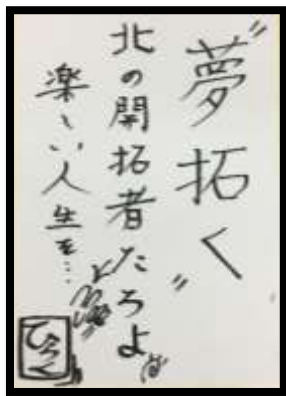 〝夢拓く〟
北の開拓者たろよ
楽しい人生を…
ひろく